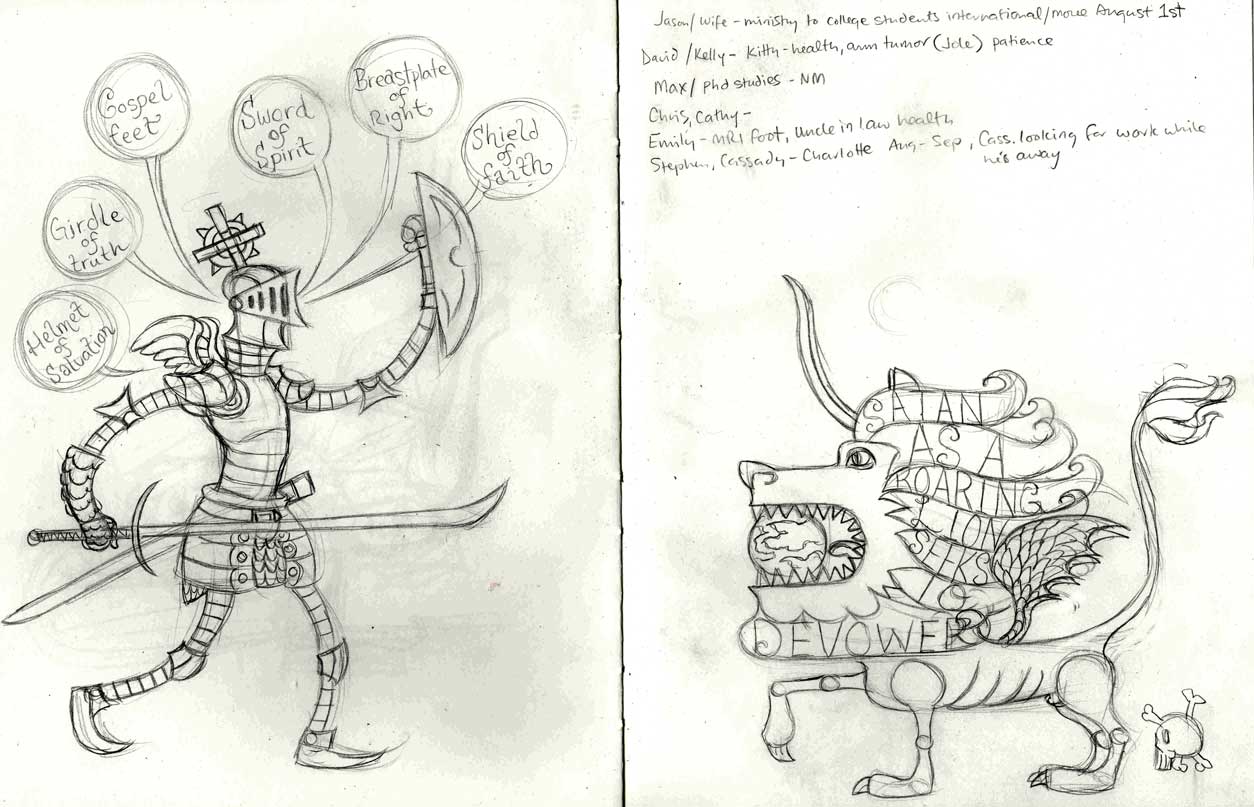 Gospel
feet
Sword
of
Spirit
Breastplate
of
Right
Shield
of
faith
Girdle
of
truth
Helmet
of
Salvation
Jason/wife - ministry to college students international/move August 1st
David/Kelly - Kitty-health, arm tumor (Jole) patience
Max/ phd studies - NM
Chris, Cathy -
Emily - MRI foot, Uncle in law health
Stephen, Cassady - Charlotte Aug - Sep, Cass. looking for work while
he's away
SATAN
AS A
ROARING
LION
SEEKS
DEVOWER